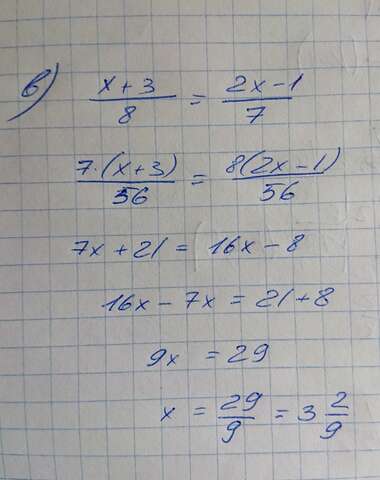 в) x+3/8 = 2x-1/7
7·(x+3)/56 = 8(2x-1)/56
7x+21 = 16x-8
16x-7x = 21+8
9x = 29
x = 29/9 = 3 2/9